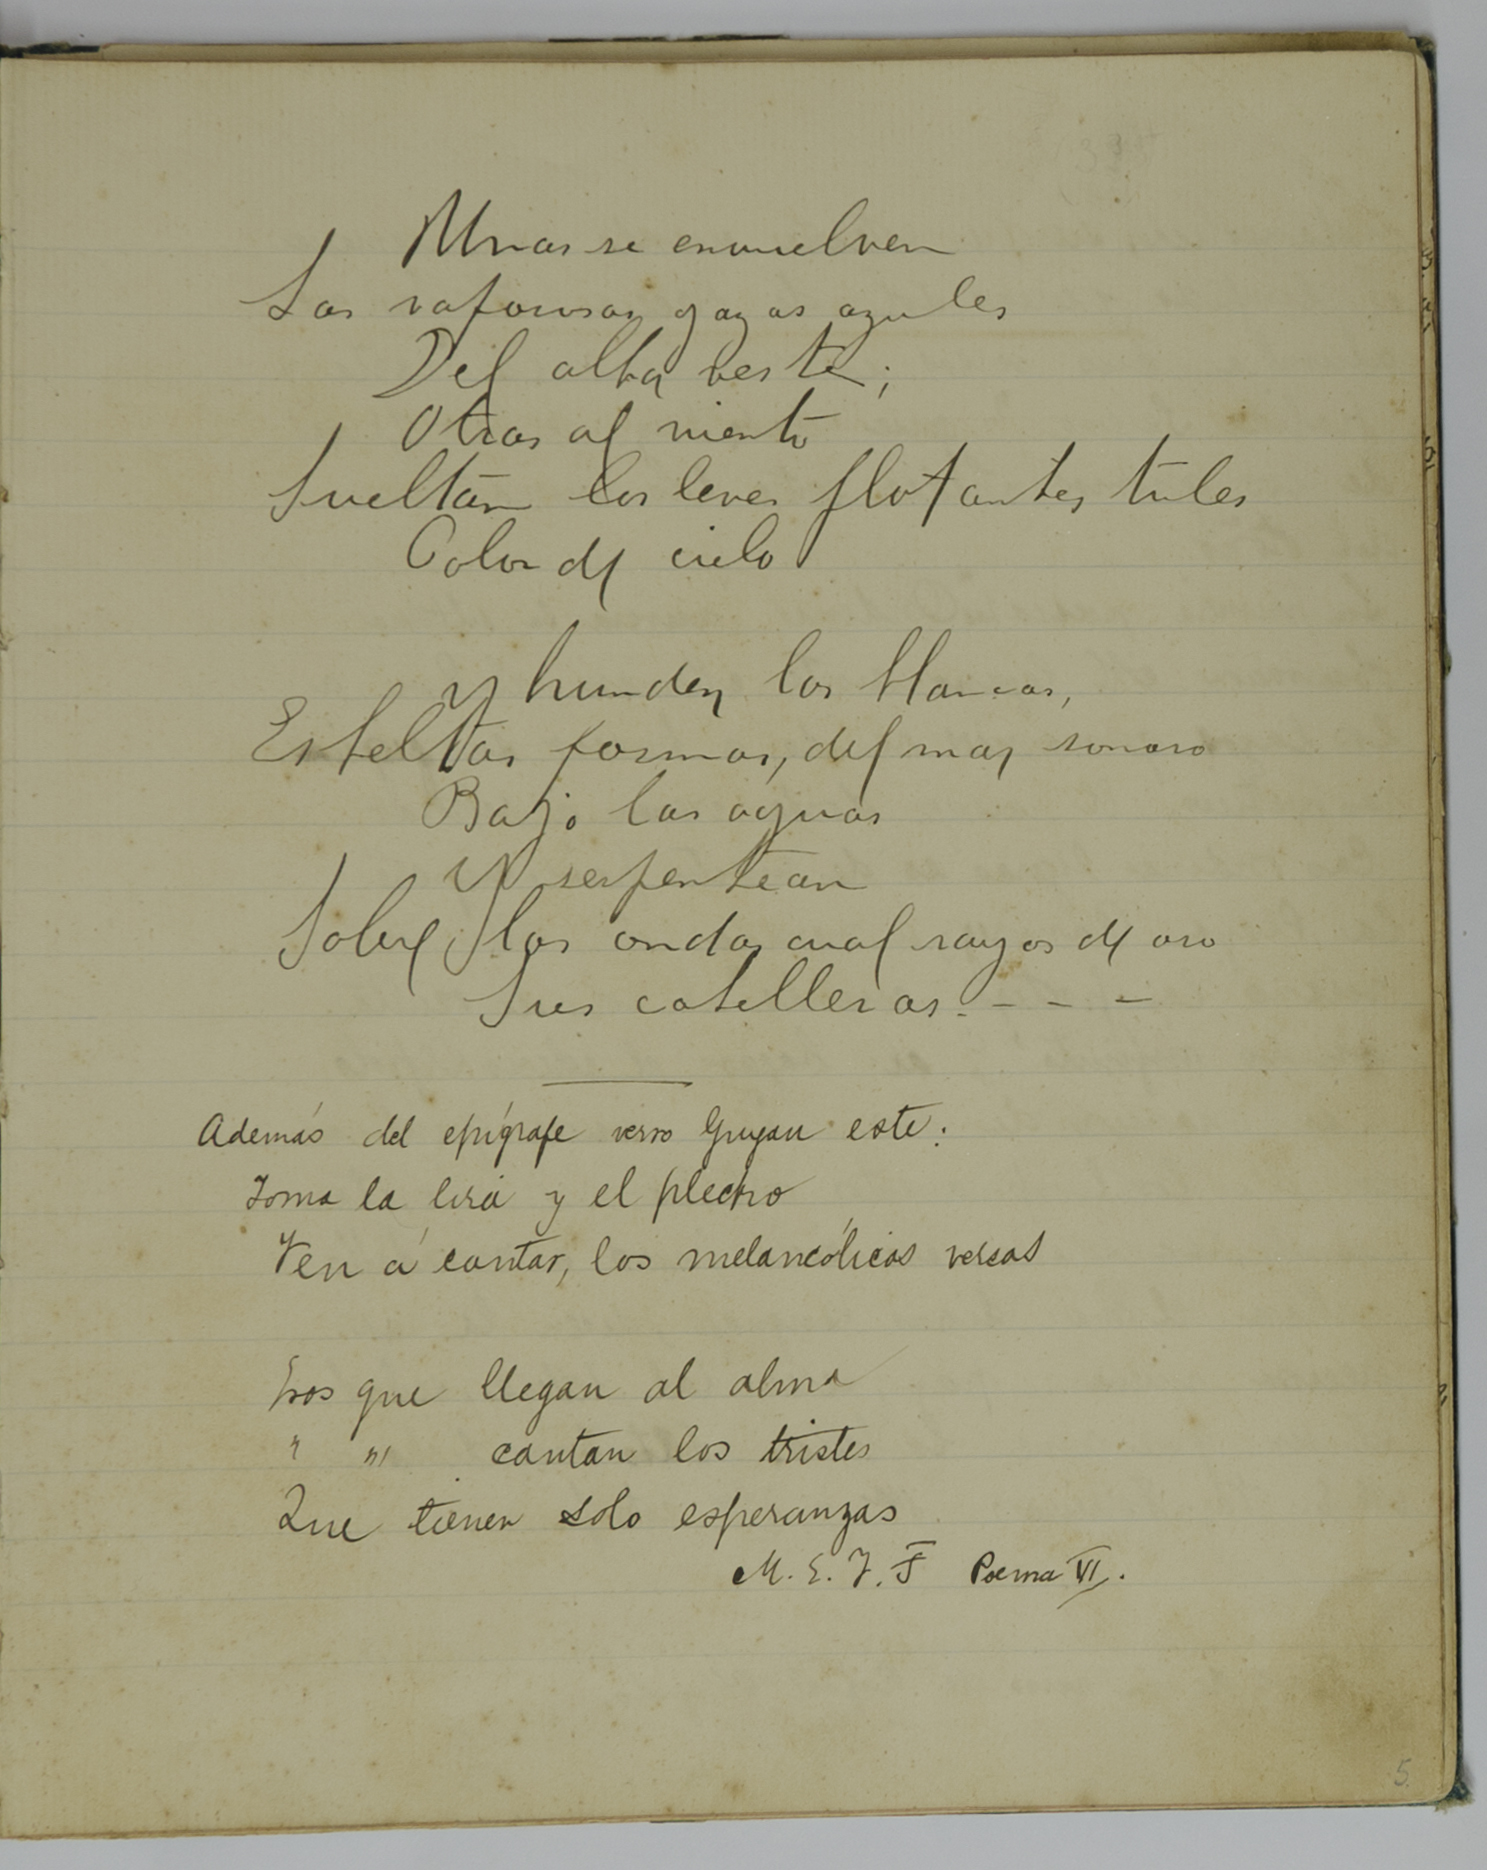 Unas se envuelven
Las vaporosas gazas azules
Del alba veste;
Otras al viento
Sueltan los leves flotantes tules
Color de cielo
Y hunden las blancas,
Esbeltas formas, del mar sonoro
Bajo las aguas
Y serpentean
Sobre las ondas cual rayos de oro
Sus cabelleras. - - -
Además del epígrafe verso Guyau este:
Toma la lira y el plectro
Ven á cantar, los melancólicos versos
Esos que llegan al alma
" " cantan los tristes
Que tienen solo esperanzas
M. E. J. F Poema VI.
5